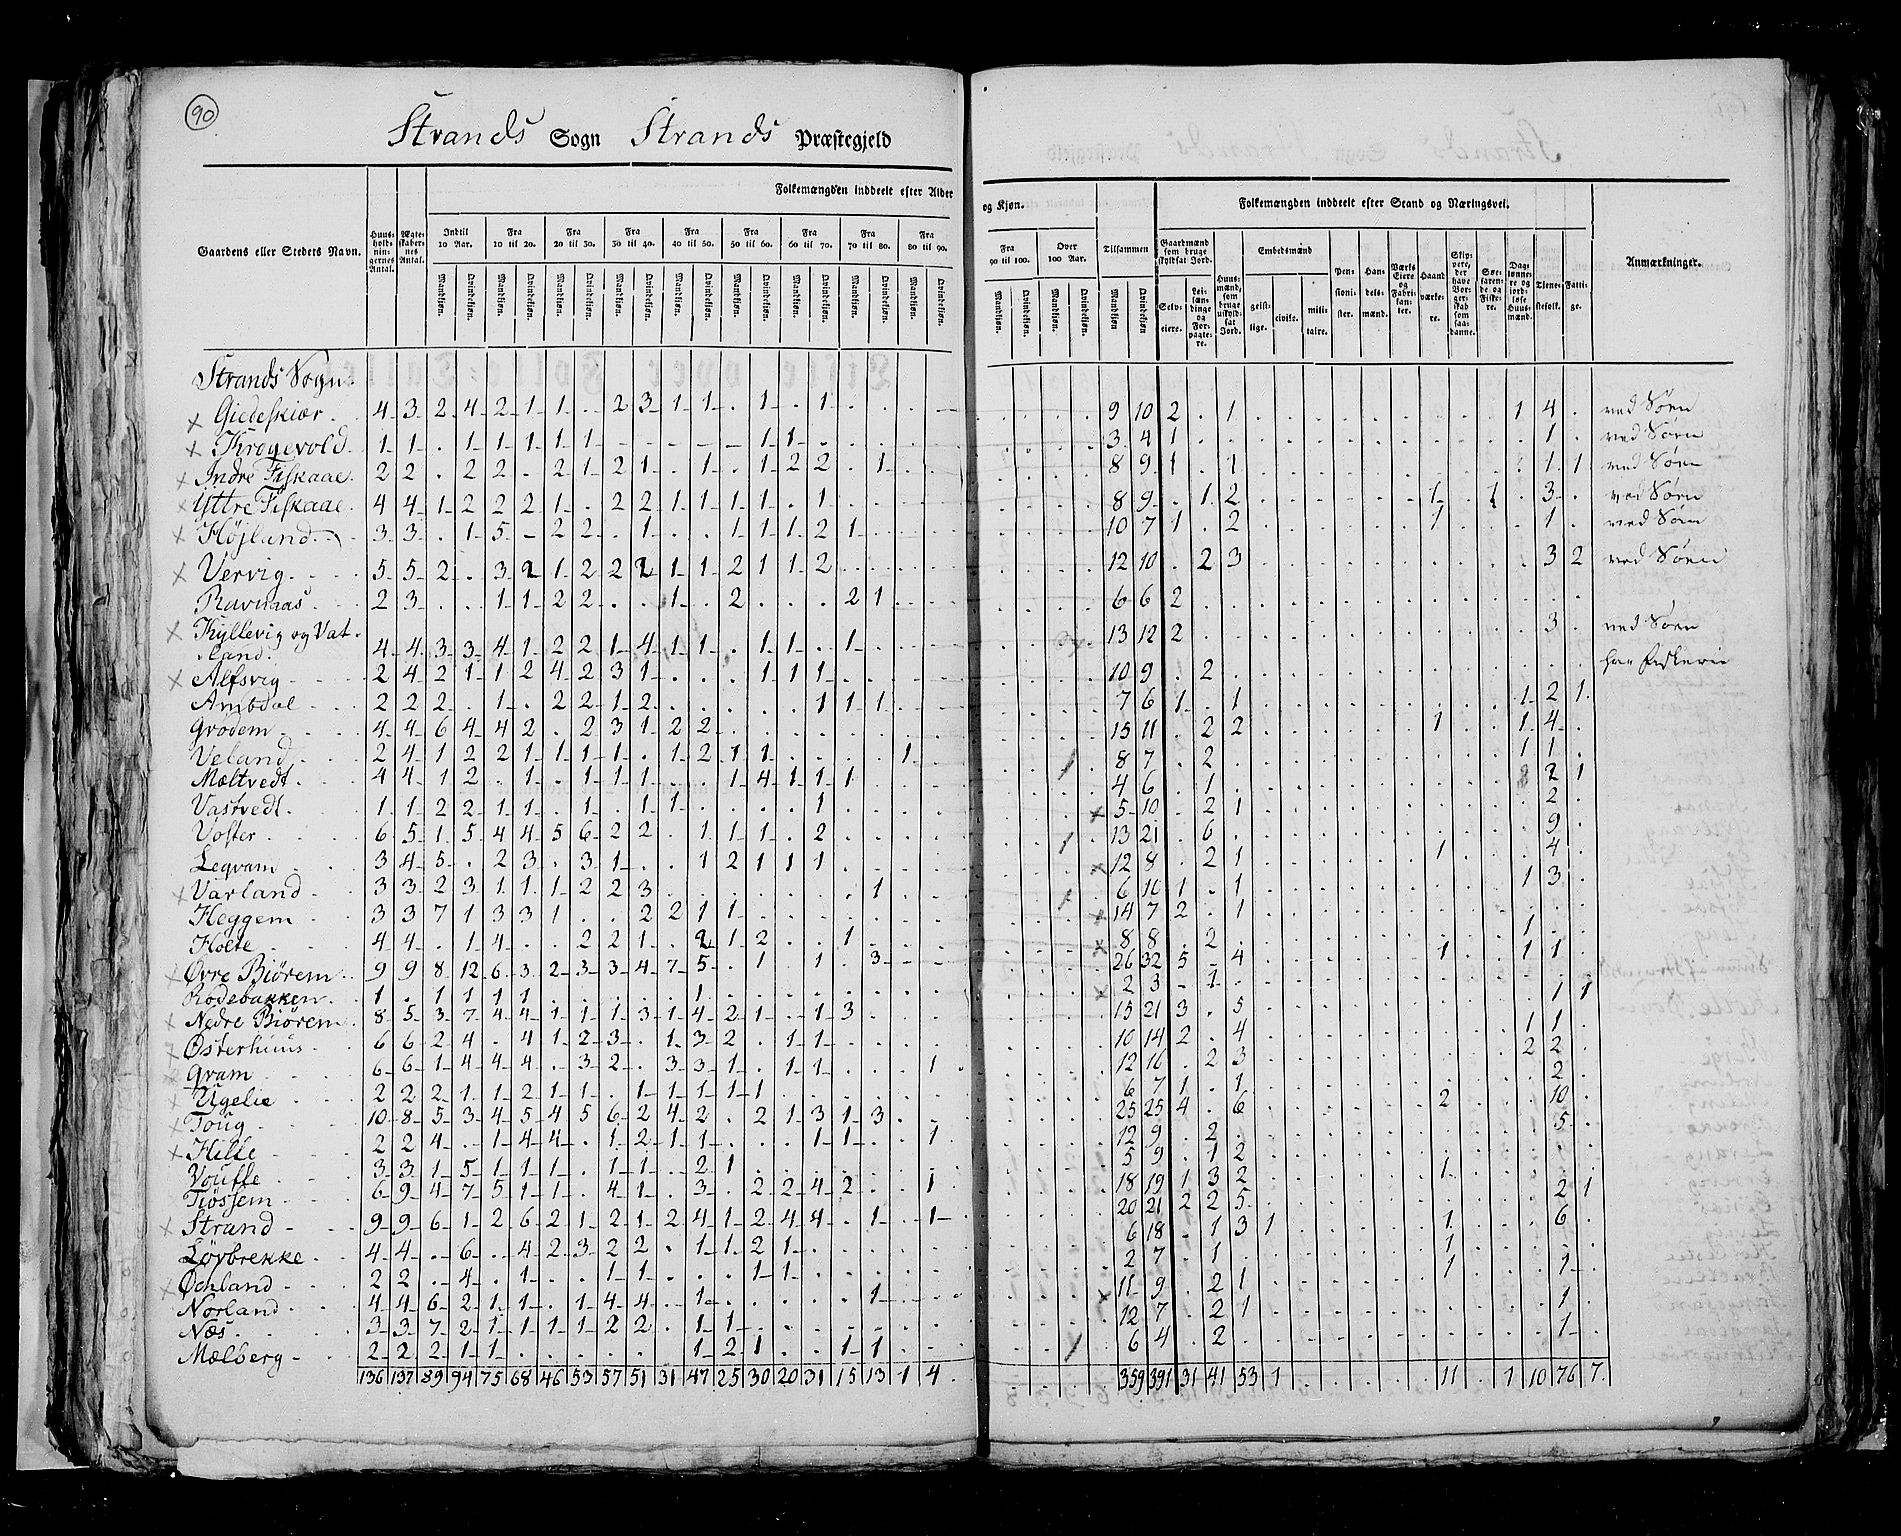 90
Strands Sogn Strands Præstegjeld
Folkemængden inddeelt efter Alder og Kjøn.
Folkemængden inddeelt efter Stand og Næringsvei.
Gaardens eller Stedets Navn.
Huusholdningernes Antal.
Ægteskabernes Antal.
Indtil 10 Aar.
Fra 10 til 20.
Fra 20 til 30.
Fra 30 til 40.
Fra 40 til 50.
Fra 50 til 60.
Fra 60 til 70.
Fra 70 til 80.
Fra 80 til 90.
Fra 90 til 100.
Over 100 Aar.
Tilsammen
Mandkjøn. Qvindekjøn.
Gaardmænd som bruge skyldsat Jord.
Selveiere.
Leilændinge og Forpagtere.
Huusmænd, som bruge uskyldsat Jord.
Embedsmænd
geistlige. civile. militaire.
Pensionister.
Handelsmænd.
Værks Eiere og Fabrikanter.
Haandværkere.
Skippere, der have Borgerskab som saadanne.
Søefarende og Fiskere.
Daglønnere og jordløse Huusmænd.
Tjenestefolk.
Fattige.
Anmærkninger.
Strands Sogn.
Giedeskiær. 4 3 2 4 2 1 1 . 2 3 1 1 . 1 . 1 . . . . 9 10 2 . 1 1 4 . ved Søen
Krogevold. 1 1 . 1 1 1 1 1 - - - - - 1 1 . . . . . 3 4 1 . . 1 . ved Søen
Indre Fiskaae. 2 2 . 2 2 . 2 1 2 1 . 1 . 1 2 2 . 1 . . 8 9 1 . 1 . 1 1 ved Søen
Yttre Fiskaae. 4 4 1 2 2 2 1 . 2 2 1 1 1 1 . 1 . . . . 8 9 . 1 2 1 . 1 . 3 . ved Søen
Højland. 3 3 . 1 5 - 2 2 . 1 . . 1 1 1 2 1 . . . 10 7 1 . 2 1 . . . 1 . ved Søen
Vervig. 5 5 2 . 3 2 1 2 2 2 1 1 2 1 1 2 . . . . 12 10 . 2 3 3 2 ved Søen
Ravnaas. 2 3 . . 1 1 2 2 . . 1 . 2 . . . 2 1 . . 6 6 2
Kyllevig og Vatland. 4 4 3 3 4 1 2 2 1 4 1 1 . 1 1 . 1 . . . 13 12 2 3 . ved Søen
Alfsvig 2 4 2 1 1 2 4 2 3 1 . . . 1 1 1 . . . . 10 9 . 2 . har fiskerie
Ambdal 2 2 2 . 1 . 2 2 1 2 . . . . . 1 1 1 . . 7 6 1 . 1 1 2 1
Grödem 4 4 6 4 4 2 . 2 3 1 2 2 . . . . . . . . 15 11 . 2 2 1 1 4 .
Veland 2 4 1 2 2 1 1 1 1 . 1 2 1 1 . . . . 1 . 8 7 . 2 . 1 1 .
Mæltvedt. 4 4 1 2 . 1 . 1 1 1 . . 1 4 1 1 1 . . . 4 6 . 1 . 2 1
Vastvedt. 1 1 2 2 1 1 . 1 . 1 1 . . . . 1 . . . . 5 10 . 2 1 2 .
Voster 6 5 1 5 4 4 5 6 2 2 . 1 1 1 . 2 . . . . 13 21 . 6 . 9 .
Legvam 3 4 5 . 2 3 . 3 1 . . 1 2 1 1 1 . . . . 12 8 . 2 1 1 4 .
Varland 3 3 2 3 1 1 1 2 2 3 . . . . . . . 1 . . 6 10 1 . 1 1 3 .
Heggem 3 3 7 1 3 3 1 . . 2 2 1 1 . . . . . . . 14 7 2 . 1
Holte 4 4 . 1 4 . . 2 2 1 . 2 1 2 . . 1 . . . 8 8 . 2 . 1 . .
Øvre Biörem 9 9 8 12 6 3 2 3 3 4 7 5 . 1 . 1 . 3 . . 26 32 5 . 4 1 1 1 .
Rödebakken. 1 . 1 1 1 1 . . . . . 1 . . . . . . . . 2 3 . 1 .
Nedre Biörem 8 5 3 7 4 4 1 1 1 3 1 4 2 1 . 1 3 . . . 15 21 3 . 5 1 1
Østerhuus. 6 6 2 4 . 4 1 2 3 . 1 3 2 . 1 1 . . . . 10 14 2 . 4 1 1 .
Gram 6 6 1 4 4 4 . 3 2 . 3 3 1 . 1 1 . . . 1 12 16 . 2 3 2 2 .
Ugelie 2 2 2 1 1 2 1 1 . 1 1 1 1 1 . . . . . . 6 7 1 . 1 2 .
Toug 10 8 5 3 4 5 4 5 6 2 4 2 . 2 1 3 1 3 . . 25 25 4 . 6 2 10 .
Hille 2 2 4 . 1 4 4 . 1 2 1 1 . . . 1 1 . . 1 12 9 . 2 . 5 .
Voulle 3 3 1 5 1 1 1 . 1 1 . 2 1 . . . . . . . 5 9 . 1 2
Tiössem 6 9 4 7 5 1 1 . 4 1 . 3 . 2 2 4 2 . . 1 18 19 1 3 2 1 2 1
Strand 9 9 6 1 2 6 2 1 2 1 2 4 1 2 4 4 . 1 . 1 20 21 2 2 5 6 .
Löybrekke 4 4 . 6 . 4 2 3 2 2 . 1 1 2 1 . . . . . 6 18 . 1 3 1 1
Ochland 2 2 . 4 . 1 . . 1 1 . . . 1 1 . . . . . 2 7 . 1 . 1
Norland 4 4 6 2 1 1 . 1 4 4 . 1 . . . . . 1 . . 11 9 . 2 1 1 1
Næs 3 3 7 2 1 1 1 1 2 2 . 1 1 . . . . . . . 12 7 . 2 1 1 .
Mælberg 2 2 2 1 1 . . . . . . 1 2 1 . . 1 1 . . 6 4 . 2 . 1 .
136 137 89 94 75 68 46 53 57 51 31 47 25 30 20 31 15 13 1 4 359 391 31 41 53 1 11 . 1 10 76 7